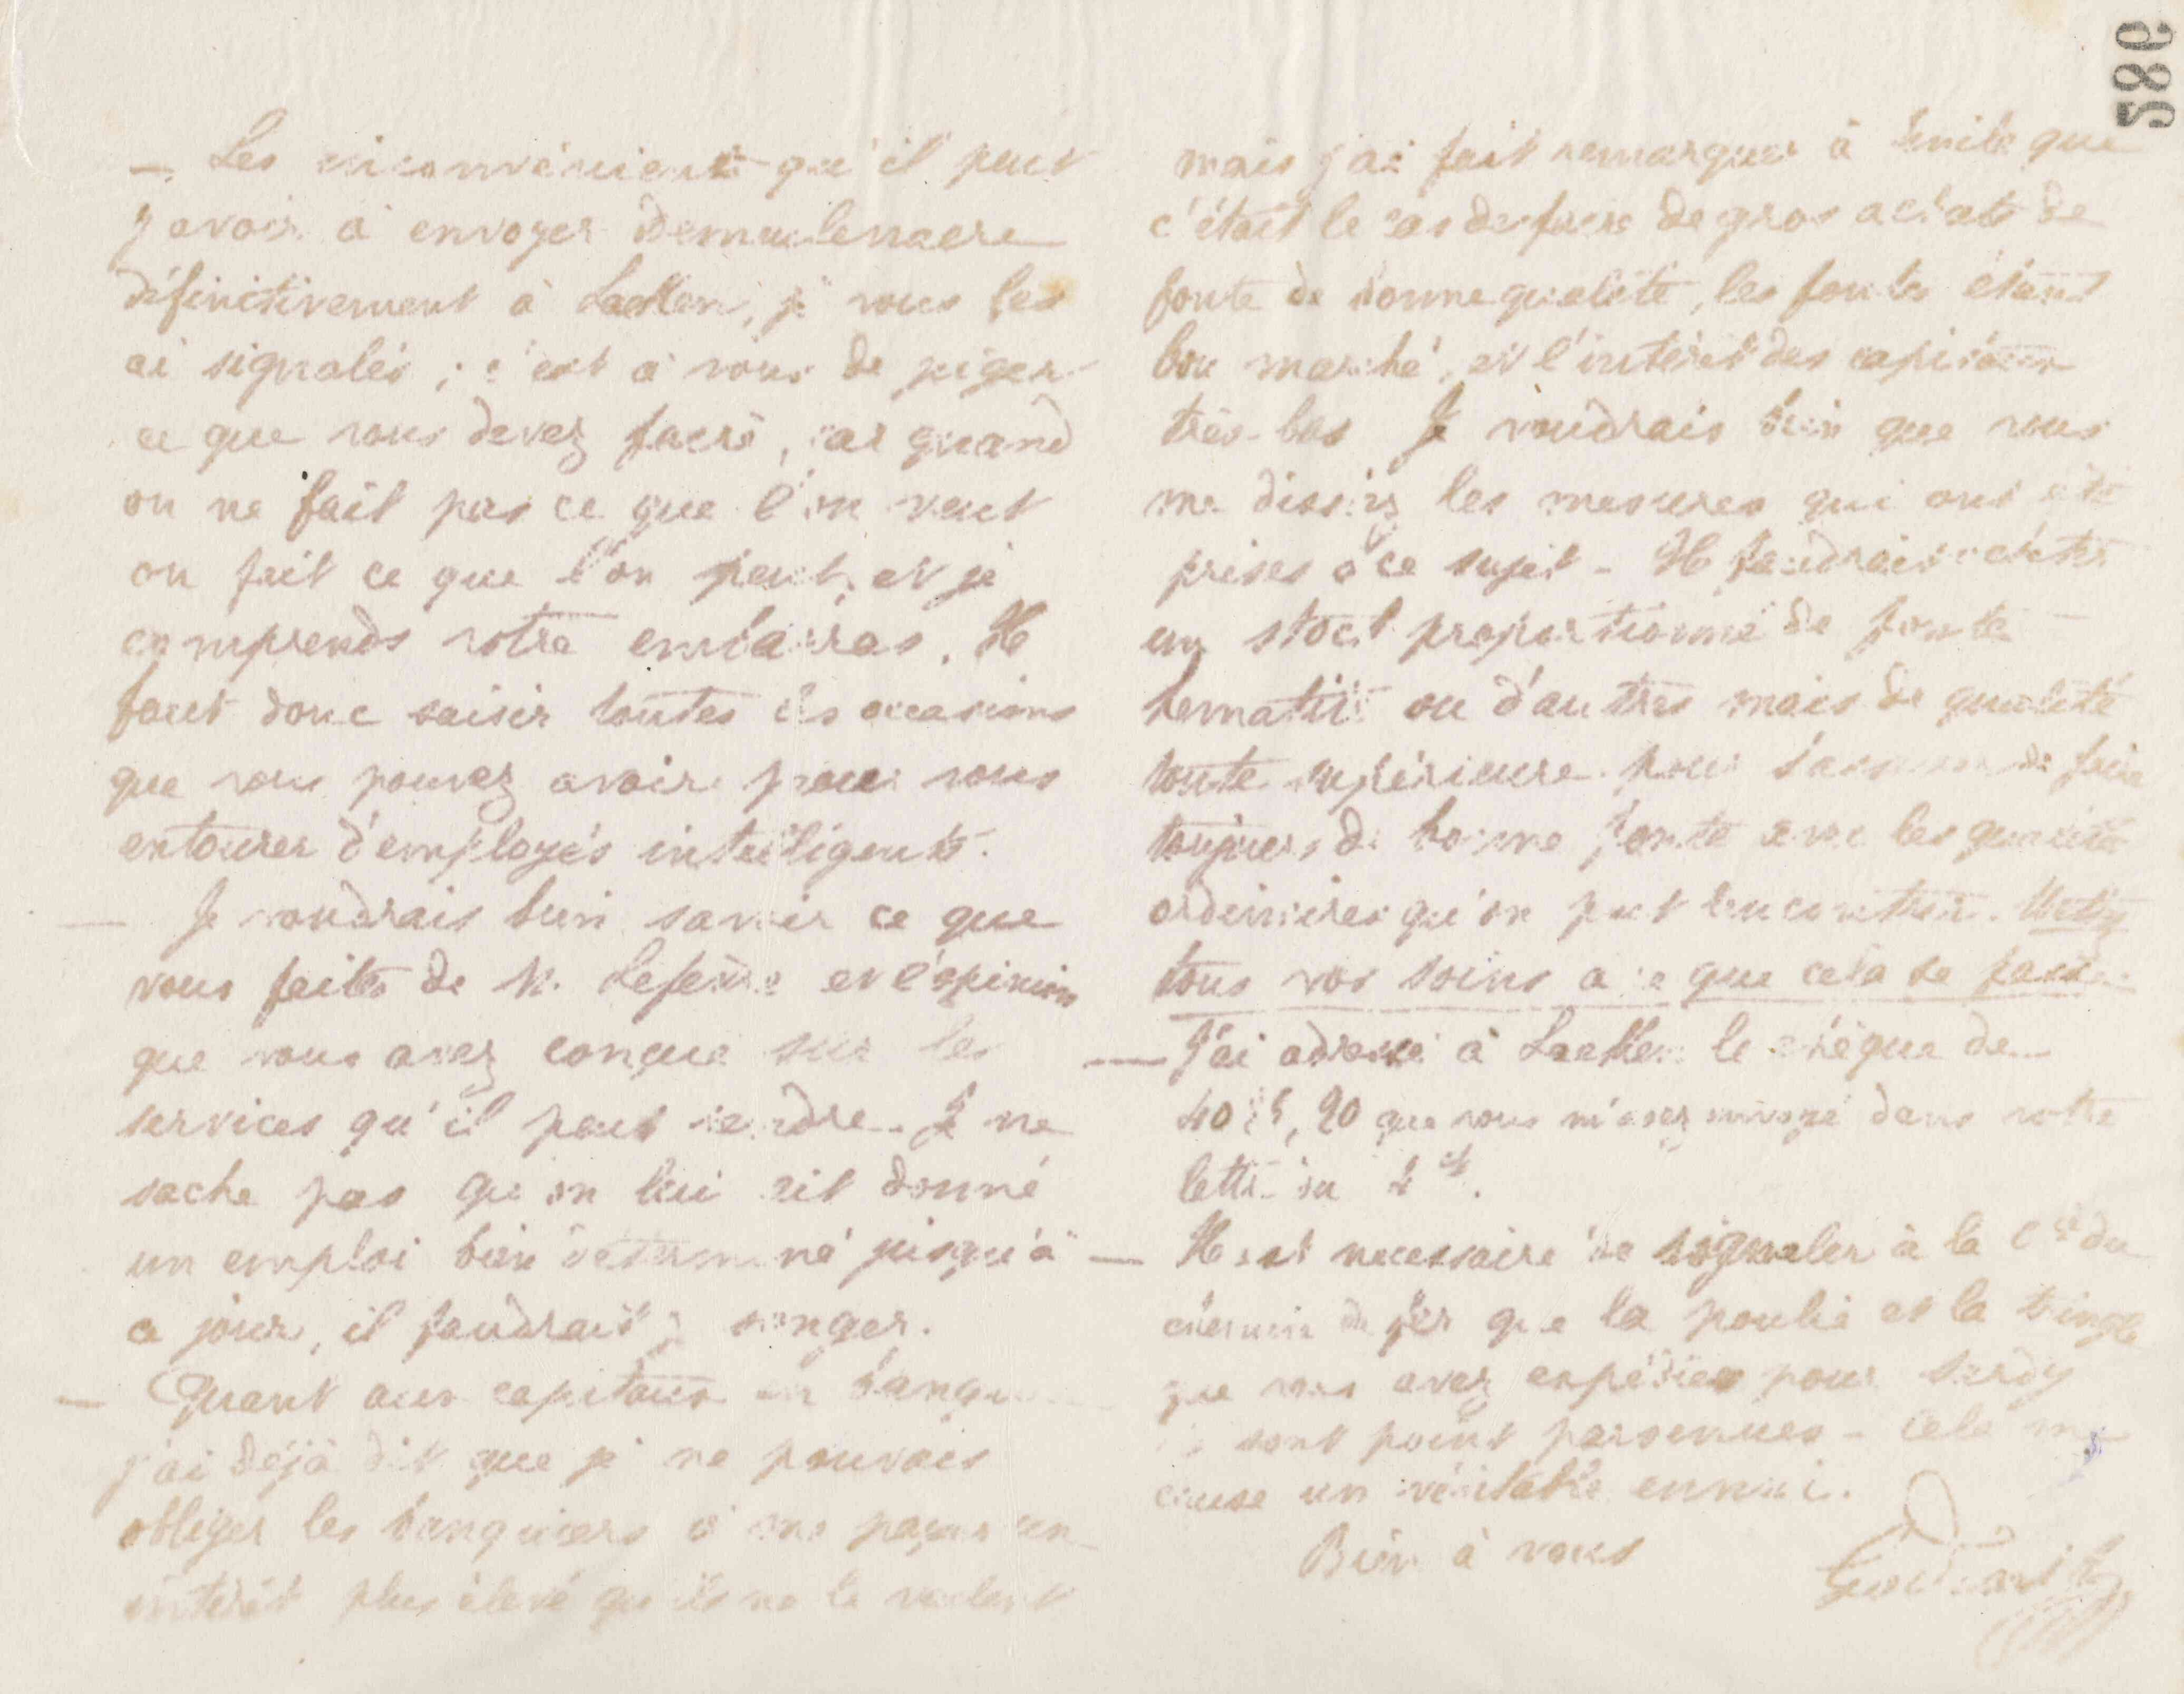 586
— Les inconvénients qu'il peut
y avoir à envoyer Demeulenaere
définitivement à Laeken, je vous les
ai signalés ; c'est à vous de juger
ce que vous devez faire, car quand
on ne fait pas ce que l'on veut
on fait ce que l'on peut, et je
comprends votre embarras. Il
faut donc saisir toutes les occasions
que vous pouvez avoir pour vous
entourer d'employés intelligents.
— Je voudrais bien savoir ce que
vous faites de M. Lefèvre et l'opinion
que vous avez conçue sur les
services qu'il peut rendre. Je ne
sache pas qu'on lui ait donné
un emploi bien déterminé jusqu'à
ce jour, il faudrait y songer.
— Quant aux capitaux en banque
j'ai déjà dit que je ne pouvais
obliger les banquiers à me payer un
intérêt plus élevé qu'ils ne le veulent
mais j'ai fait remarquer à Emile que
c'était le cas de faire de gros achats de
fonte de bonne qualité, les fontes étant
bon marché, et l'intérêt des capitaux
très-bas Je voudrais bien que vous
me dissiez les mesures qui ont été
prises à ce sujet - Il faudrait acheter
un stock proportionné de fonte
hematite ou d'autres mais de qualité
toute supérieure pour s'assurer de faire
toujours de bonne fonte avec les qualités
ordinaires qu'on peut rencontrer. Mettez
tous vos soins à ce que cela se fasse.
— J'ai adressé à Laeken le chèque de
que vous m'avez envoyé dans votre
lettre du
— Il est necessaire de signaler à la Cie du
chemin de fer que la poulie et la tringle
que vous avez expédiées pour Sardy
ne sont point parvenues - Cela me
cause un véritable ennui.
Bien à vous
Godin